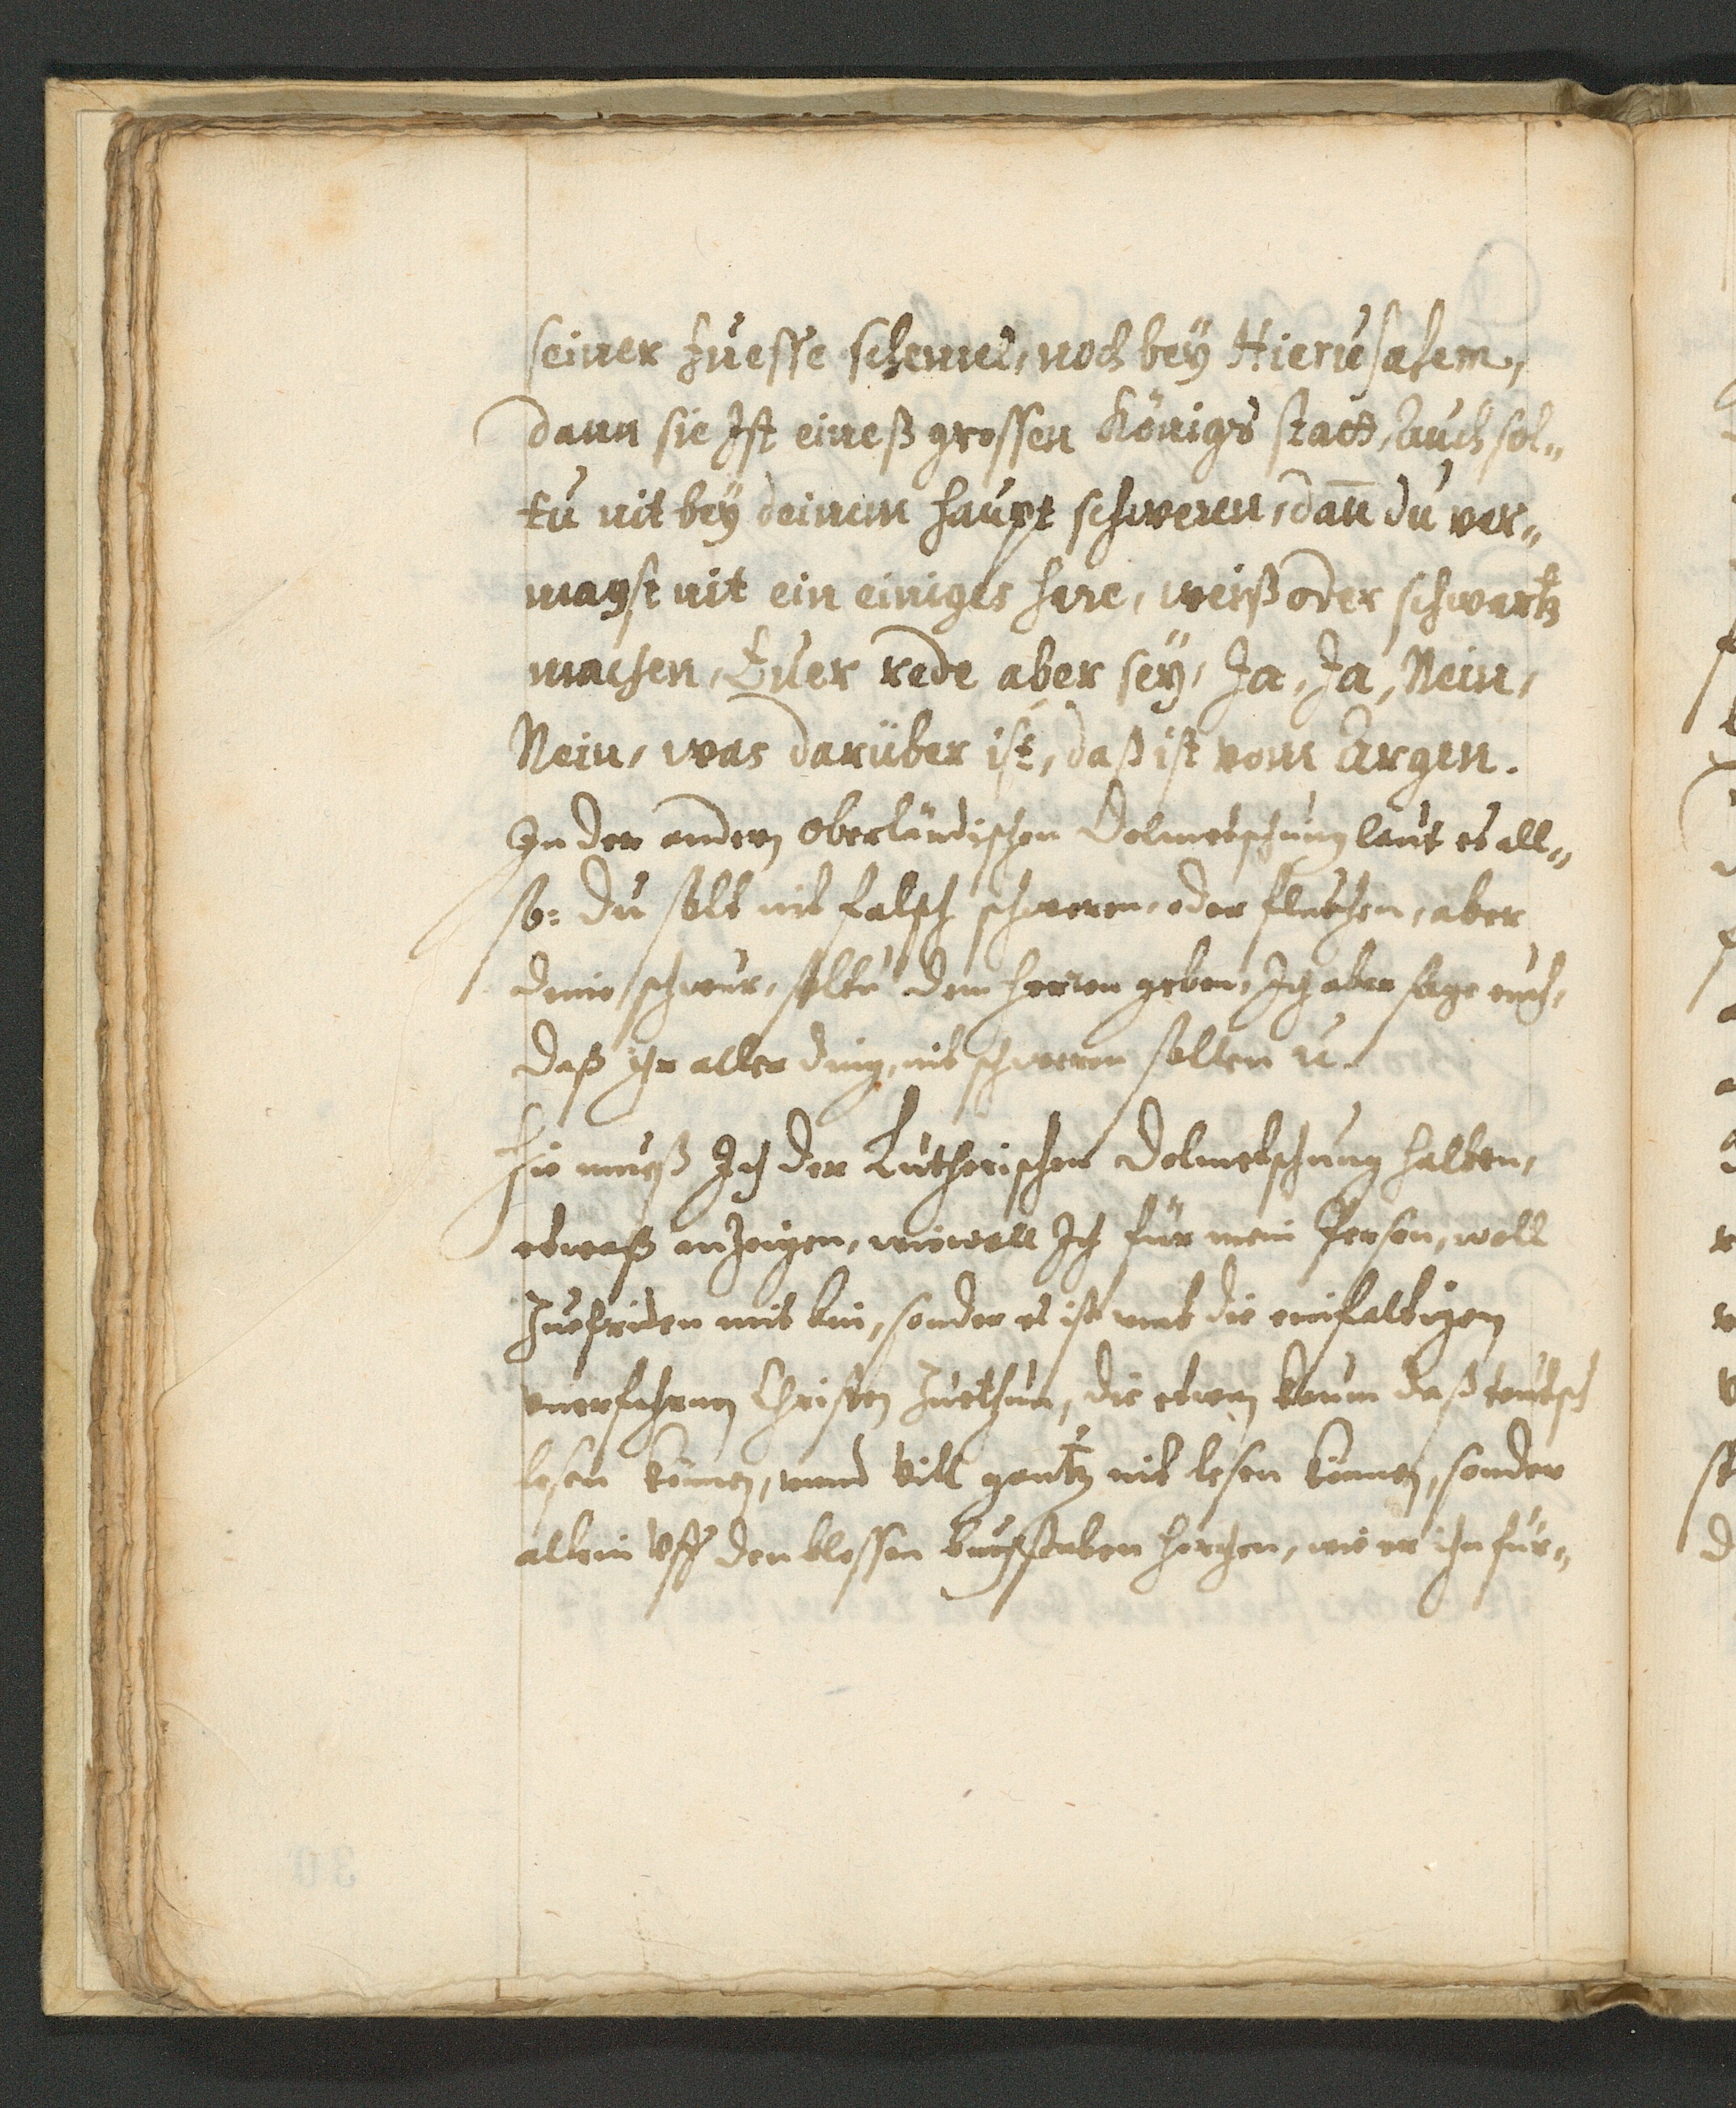 seiner Fuesse schemel, noch bey Hierusalem,
dann sie Ist eineß grossen Königs statt, Auch sol„
tu nit bey deinem haupt schweren, dañ du ver„
magst nit ein einiges hare, weiß oder schwartz
machen, Euer rede aber sey, Ja, Ja, Nein,
Nein, was darüber ist, daß ist vom Argen.
In der andern Oberländischen Dolmetschung laut es all„
so: Du solt nit falsch schweren, oder fluchen, aber
deine schwür, soltu dem herren geben, Ich aber sage euch,
daß ihr aller ding, nit schweren sollen ꝛc.
Hie mueß Ich der Lutherischen Dolmetschung halben,
etwaß anzeigen, wiewoll Ich für mein Person, woll
zuefriden mit bin, sonder es ist umb die einfaltigen
unerfahrnen Christen zuethun, die etwan kaum daß teutsch
lesen können, unnd vill gantz nit lesen können, sonder
allein uff den blossen buchstaben horchen, wie er ihn für„